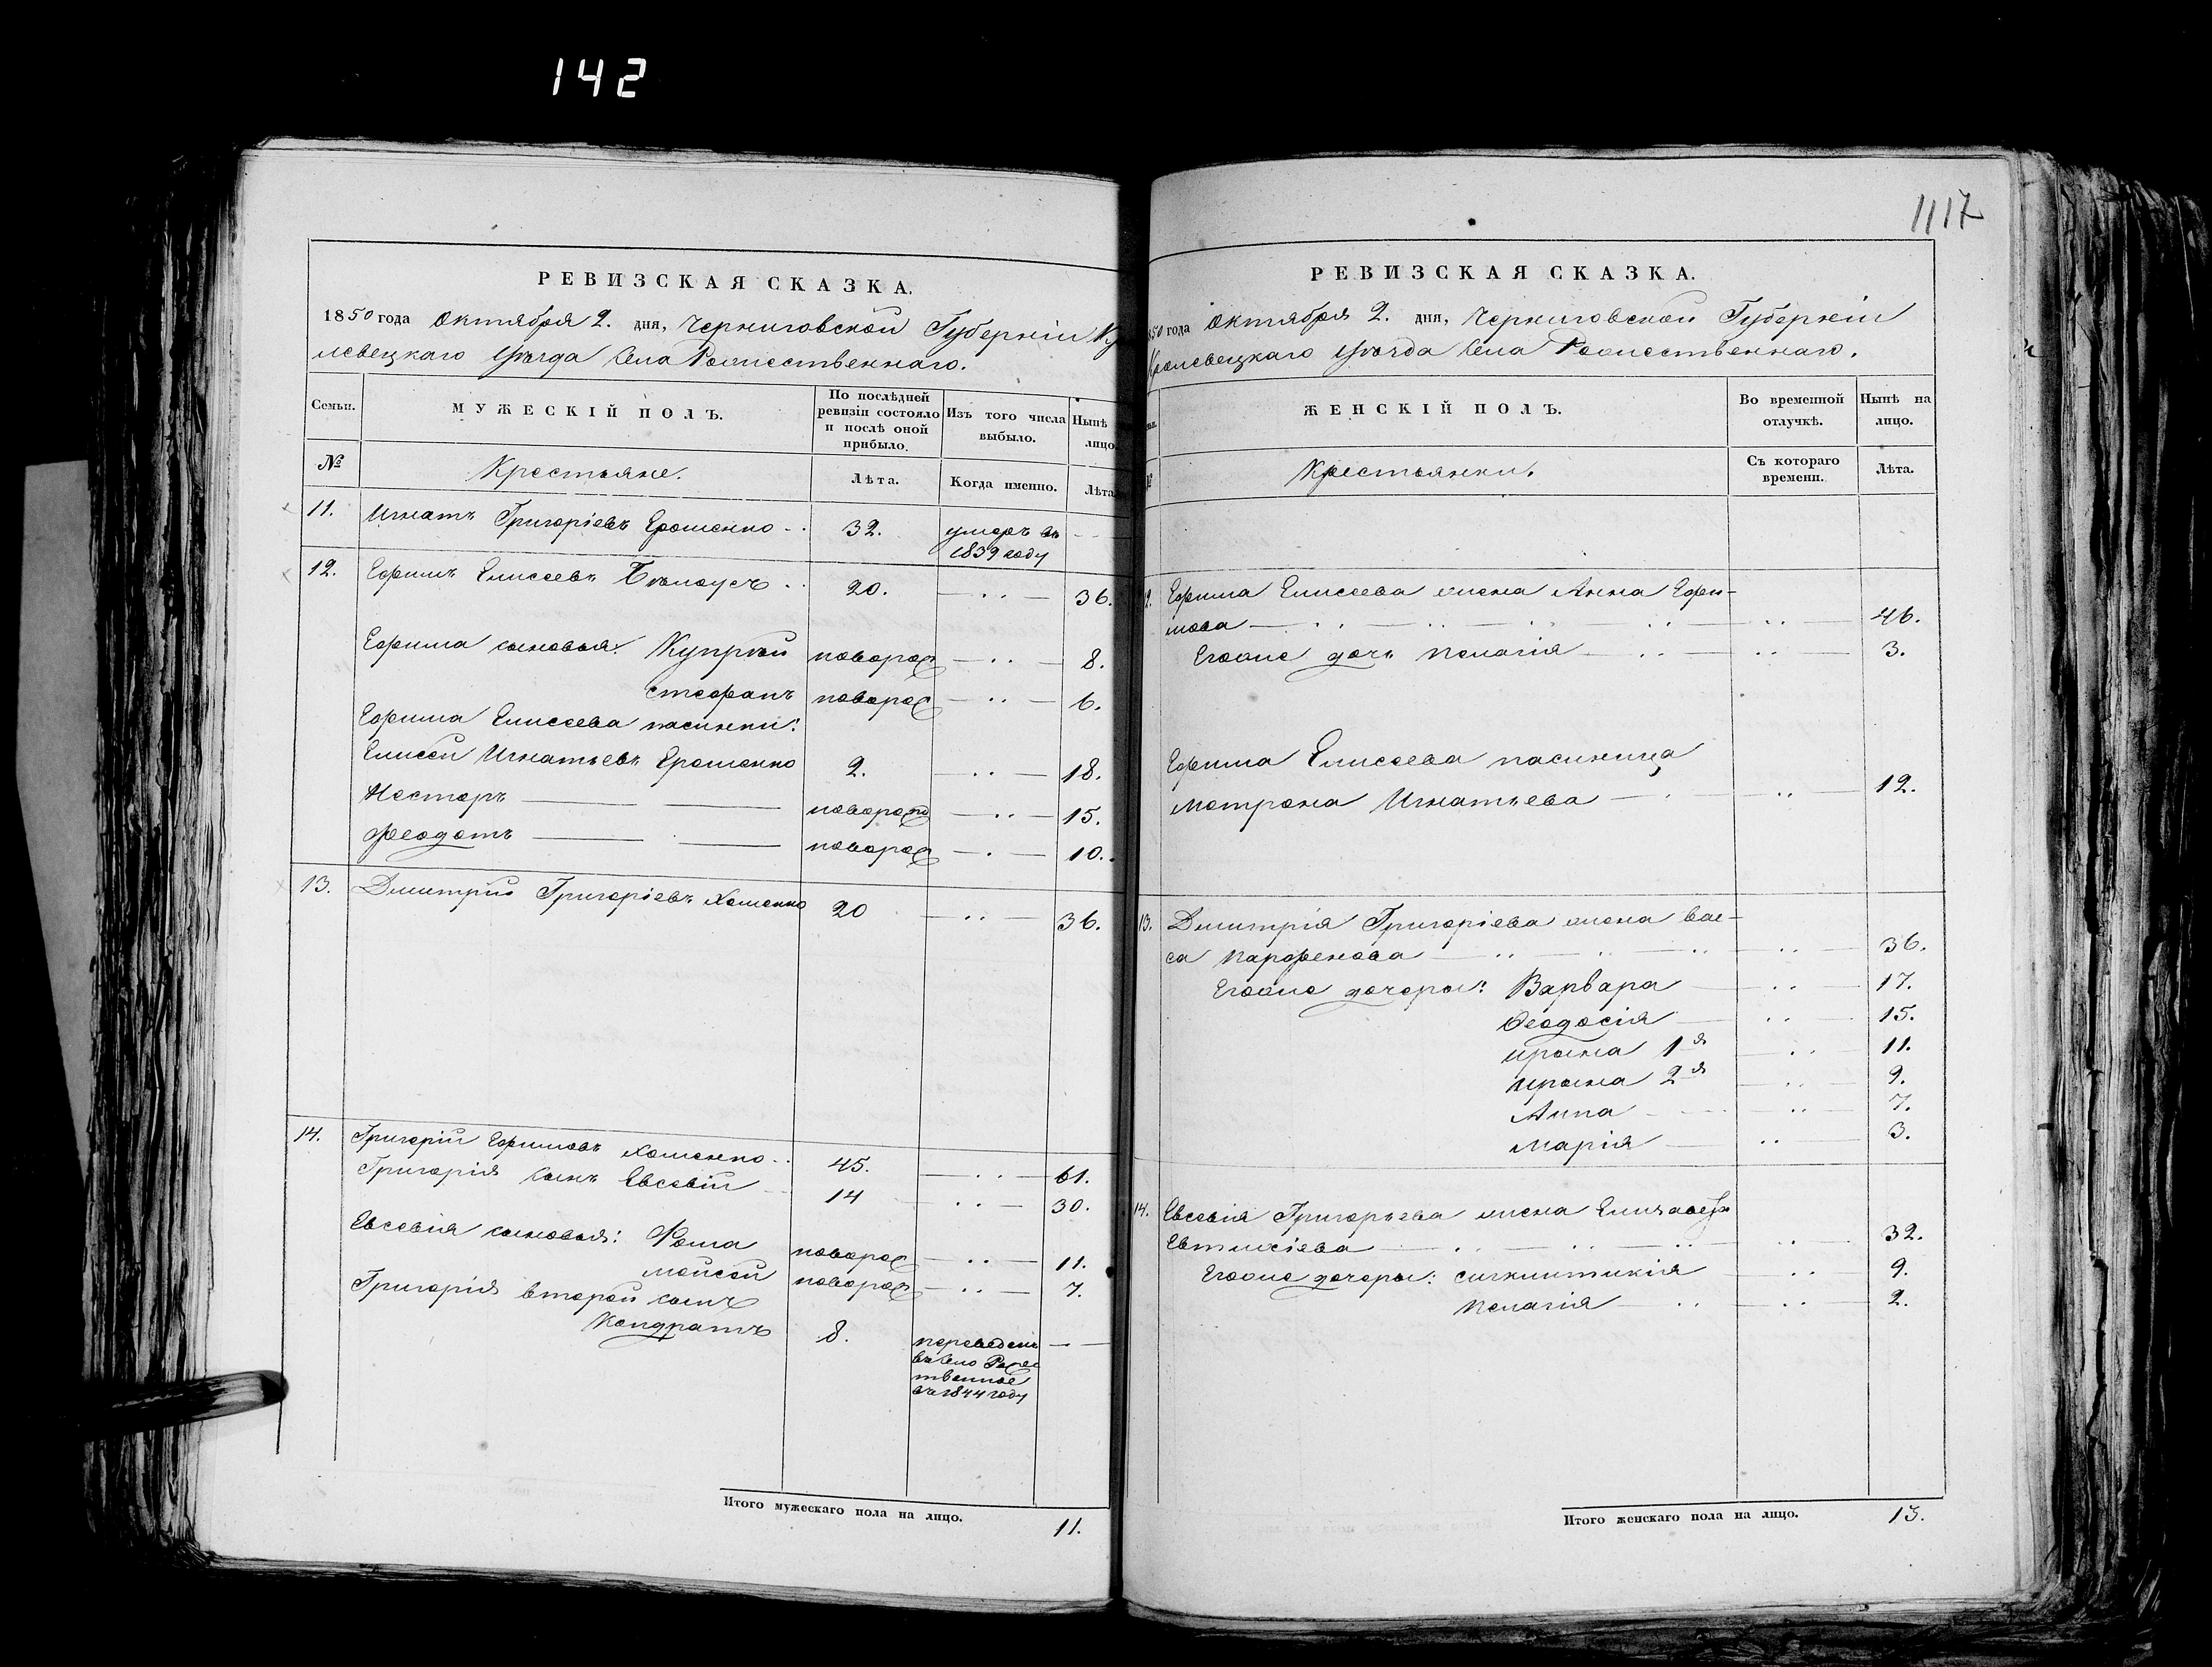 142
1117
РЕВИЗСКАЯ СКАЗКА.
1850 года Октября 2. дня, Черниговской Губерніи Кро
левецкаго Уѣзда Села Рожественнаго.
Семьи.
МУЖЕСКІЙ ПОЛЪ.
По послѣдней
ревизіи состояло
и послѣ оной
прибыло.
Изъ того числа
выбыло.
Нынѣ
лицо
№
Крестьяне.
Лѣта.
Когда именно.
Лѣта
11. Игнатъ Григоріевъ Ерошенко 32. умеръ въ
1839 году
12. Ефимъ Елисеевъ Бѣлоусъ 20. 36.
Ефима сыновья: Купрѣй новорож 8.
Стефанъ новорож 6.
Ефима Елисеева пасинки:
Елисей Игнатьевъ Ерошенко 2. 18.
Несторъ новорож 15.
Феодотъ новорож 10.
13. Димитрій Григоріевъ Хоменко 20 36.
14. Григорій Ефимовъ Хоменко 45. 61.
Григорія сынъ Евсевій 14 30.
Евсевія сыновья: Фома новорож 11.
Мойсей новорож 7.
Григорія второй сынъ
Кондратъ 8. переведенъ
въ село Рожес
твенное
въ 1844 году
Итого мужескаго пола на лицо. 11.
РЕВИЗСКАЯ СКАЗКА.
1850 года Октября 2. дня, Черниговской Губерніи
Кролевецкаго Уѣзда Села Рожественнаго.
ЖЕНСКІЙ ПОЛЪ.
Во временной
отлучкѣ.
Нынѣ на
лицо.
Крестьянки.
Съ котораго
времени.
Лѣта.
12. Ефима Елисеева жена Анна Ефи-
мова 46.
Егоже дочь Пелагія 3.
Ефима Елисеева пасиница
Мотрона Игнатьева 12.
13. Димитрія Григоріева жена Вас-
са Парфенова 36.
Егоже дочеры: Варвара 17.
Феодосія 15.
Ирина 1я 11.
Ирина 2я 9.
Анна 7.
Марія 3.
14. Евсевія Григорьева жена Елизавета
Евтихіева 32.
Егоже дочеры: Сигклитикія 9.
Пелагія 2.
Итого женскаго пола на лицо. 13.